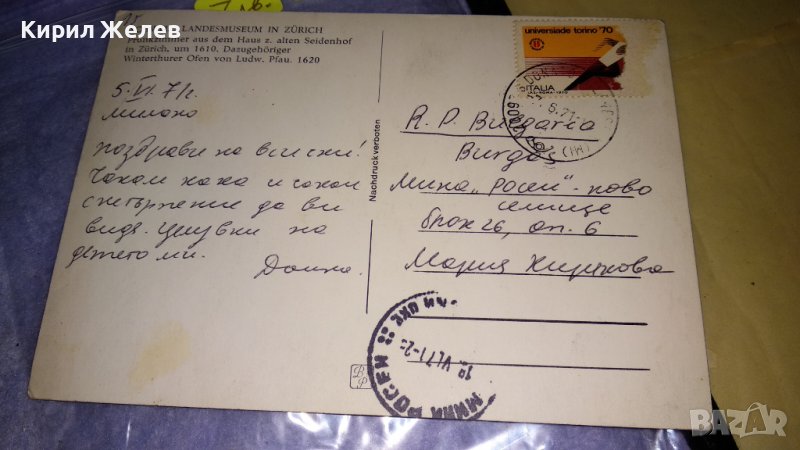 Кирил Желев
LANDESMUSEUM IN ZÜRICH
Prunkzimmer aus dem Haus z. alten Seidenhof
in Zürich, um 1610. Dazugehöriger
Winterthurer Ofen von Ludw. Pfau. 1620
5.VI.71г.
Милано
поздрави на всички!
Чакам кака и сакам
с нетърпение да ви
видя. Целувки на
детето ми.
Дошка.
Nachdruckverboten
universiade torino '70
ITALIA
R. P. Bulgaria
Burgos
Мина „Росен" - ново
селище
блок 26, ап. 6
Мария Хиркова
МИНИ РОСЕН
VI.71-2
BAZAR